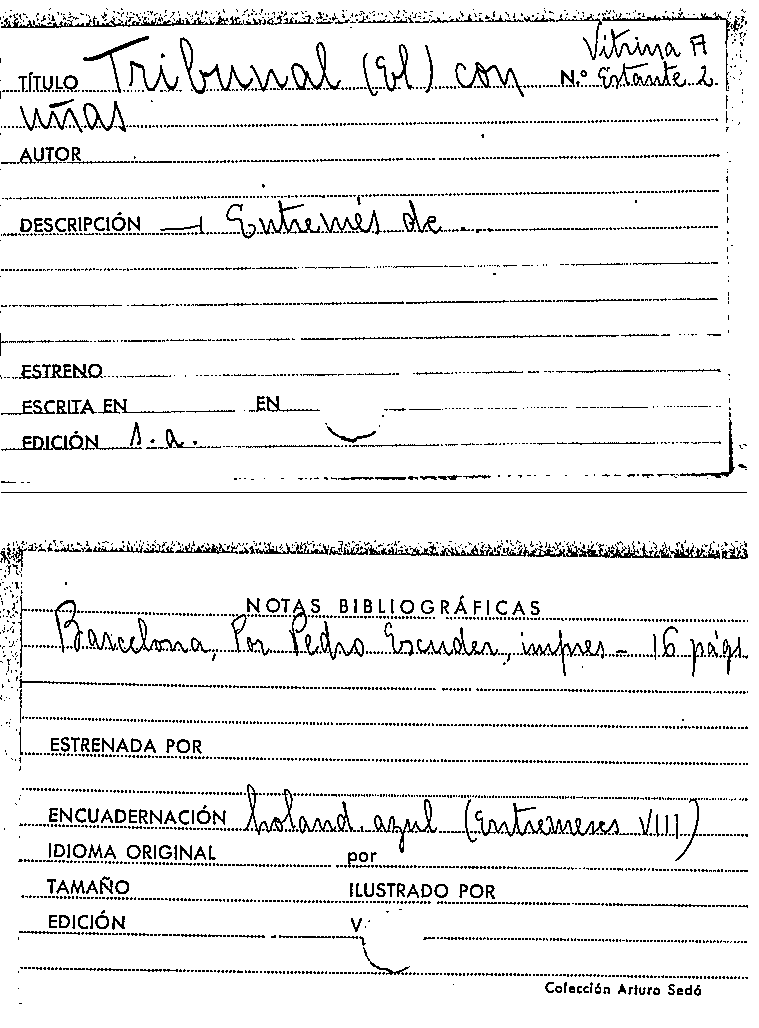 Vitrina A
TÍTULO Tribunal (El) con N.º Estante 2
uñas
AUTOR
DESCRIPCIÓN — Entremés de ...
ESTRENO
ESCRITA EN EN
EDICIÓN s. a.
NOTAS BIBLIOGRÁFICAS
Barcelona, Por Pedro Escuder, impres - 16 págs
ESTRENADA POR
ENCUADERNACIÓN holand. azul (Entremeses VIII)
IDIOMA ORIGINAL por
TAMAÑO ILUSTRADO POR
EDICIÓN V.
Colección Arturo Sedó